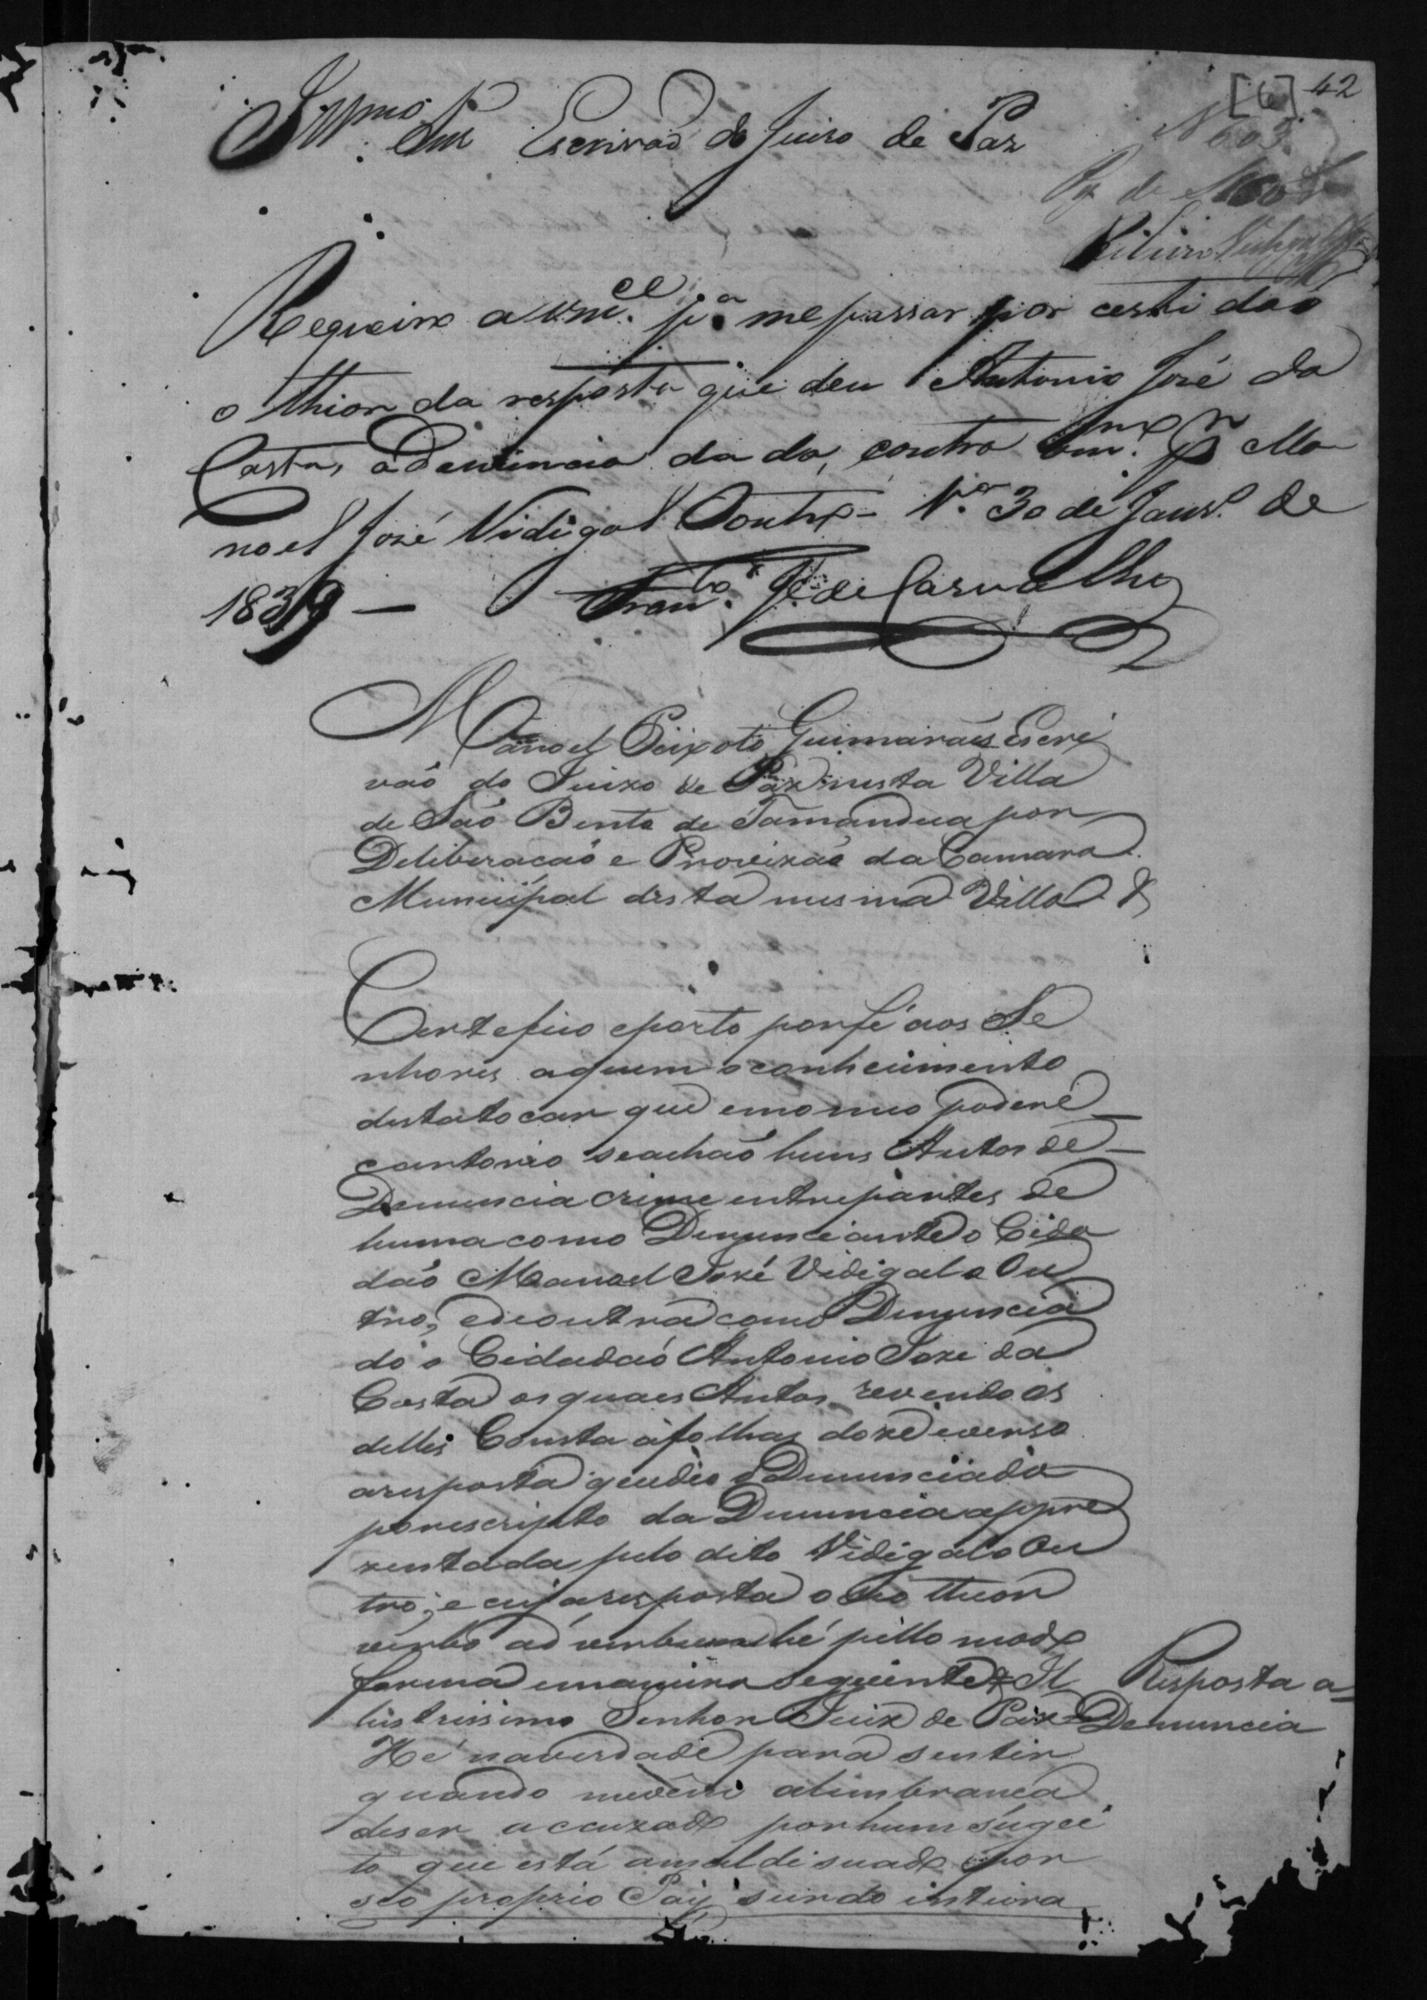 [6] 42
Illmo. Snr Escrivaõ do Juizo de Paz
N 603
Pg de
Ribeiro
Requeiro a vmce. pa. me passar por certidaõ
o thior da resposta que deu Antonio José da
Costa, a Denuncia dada, contra Ma
noel José Vidigal Outro 30 de Janro. de
1839 — Franco. Je. de Carvalho
Manoel Peixoto Guimaraẽs Escri
vaõ do Juizo de Paz nesta Villa
de Saõ Bento de Tamandua por
Deliberacaõ e Proveizaõ da Camara
Municipal desta mesma Villa &
Certefico eporto porfé aos Se
nhores aquem oconhecimento
destatocar que emomeo poder é
cartorio seachaõ huns Autos de
Denuncia crime entrepartes de
huma como Denunciante o Cida
daõ Manoel José Vidigal e Ou
tro, edeoutra como Denuncia
do o Cidadaõ Antonio Joze da
Costa os quaes Autos revendo os
delles Consta afolhas doze everso
aresposta quedeo o Denunciado
porescripto da Denuncia appre
zentada pelo dito Vidigal e Ou
tro, e cuja resposta o seo theor
verbo ad verbum hé pello mode
forma emaneira seguinte & Il
Resposta a
lustrissimo Senhor Juiz de Paz =
Denuncia
Hé naverdade para sentir
quando mevem alembranca
deser accuzado porhum sugei
to que está amaldisuado por
seo proprio Pay, sendo inteira